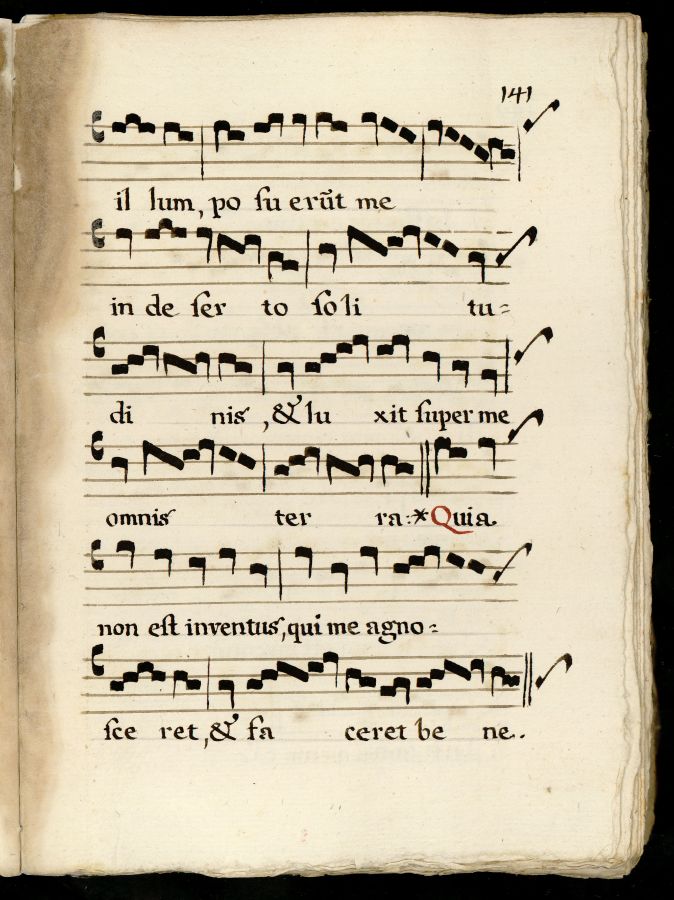 141
il lum, po ſu erūt me
in de ſer to ſo li tu=
di nis, & lu xit ſuper me
omnis ter ra:* Quia
non eſt inventus, qui me agno=
ſce ret, & fa ceret be ne..